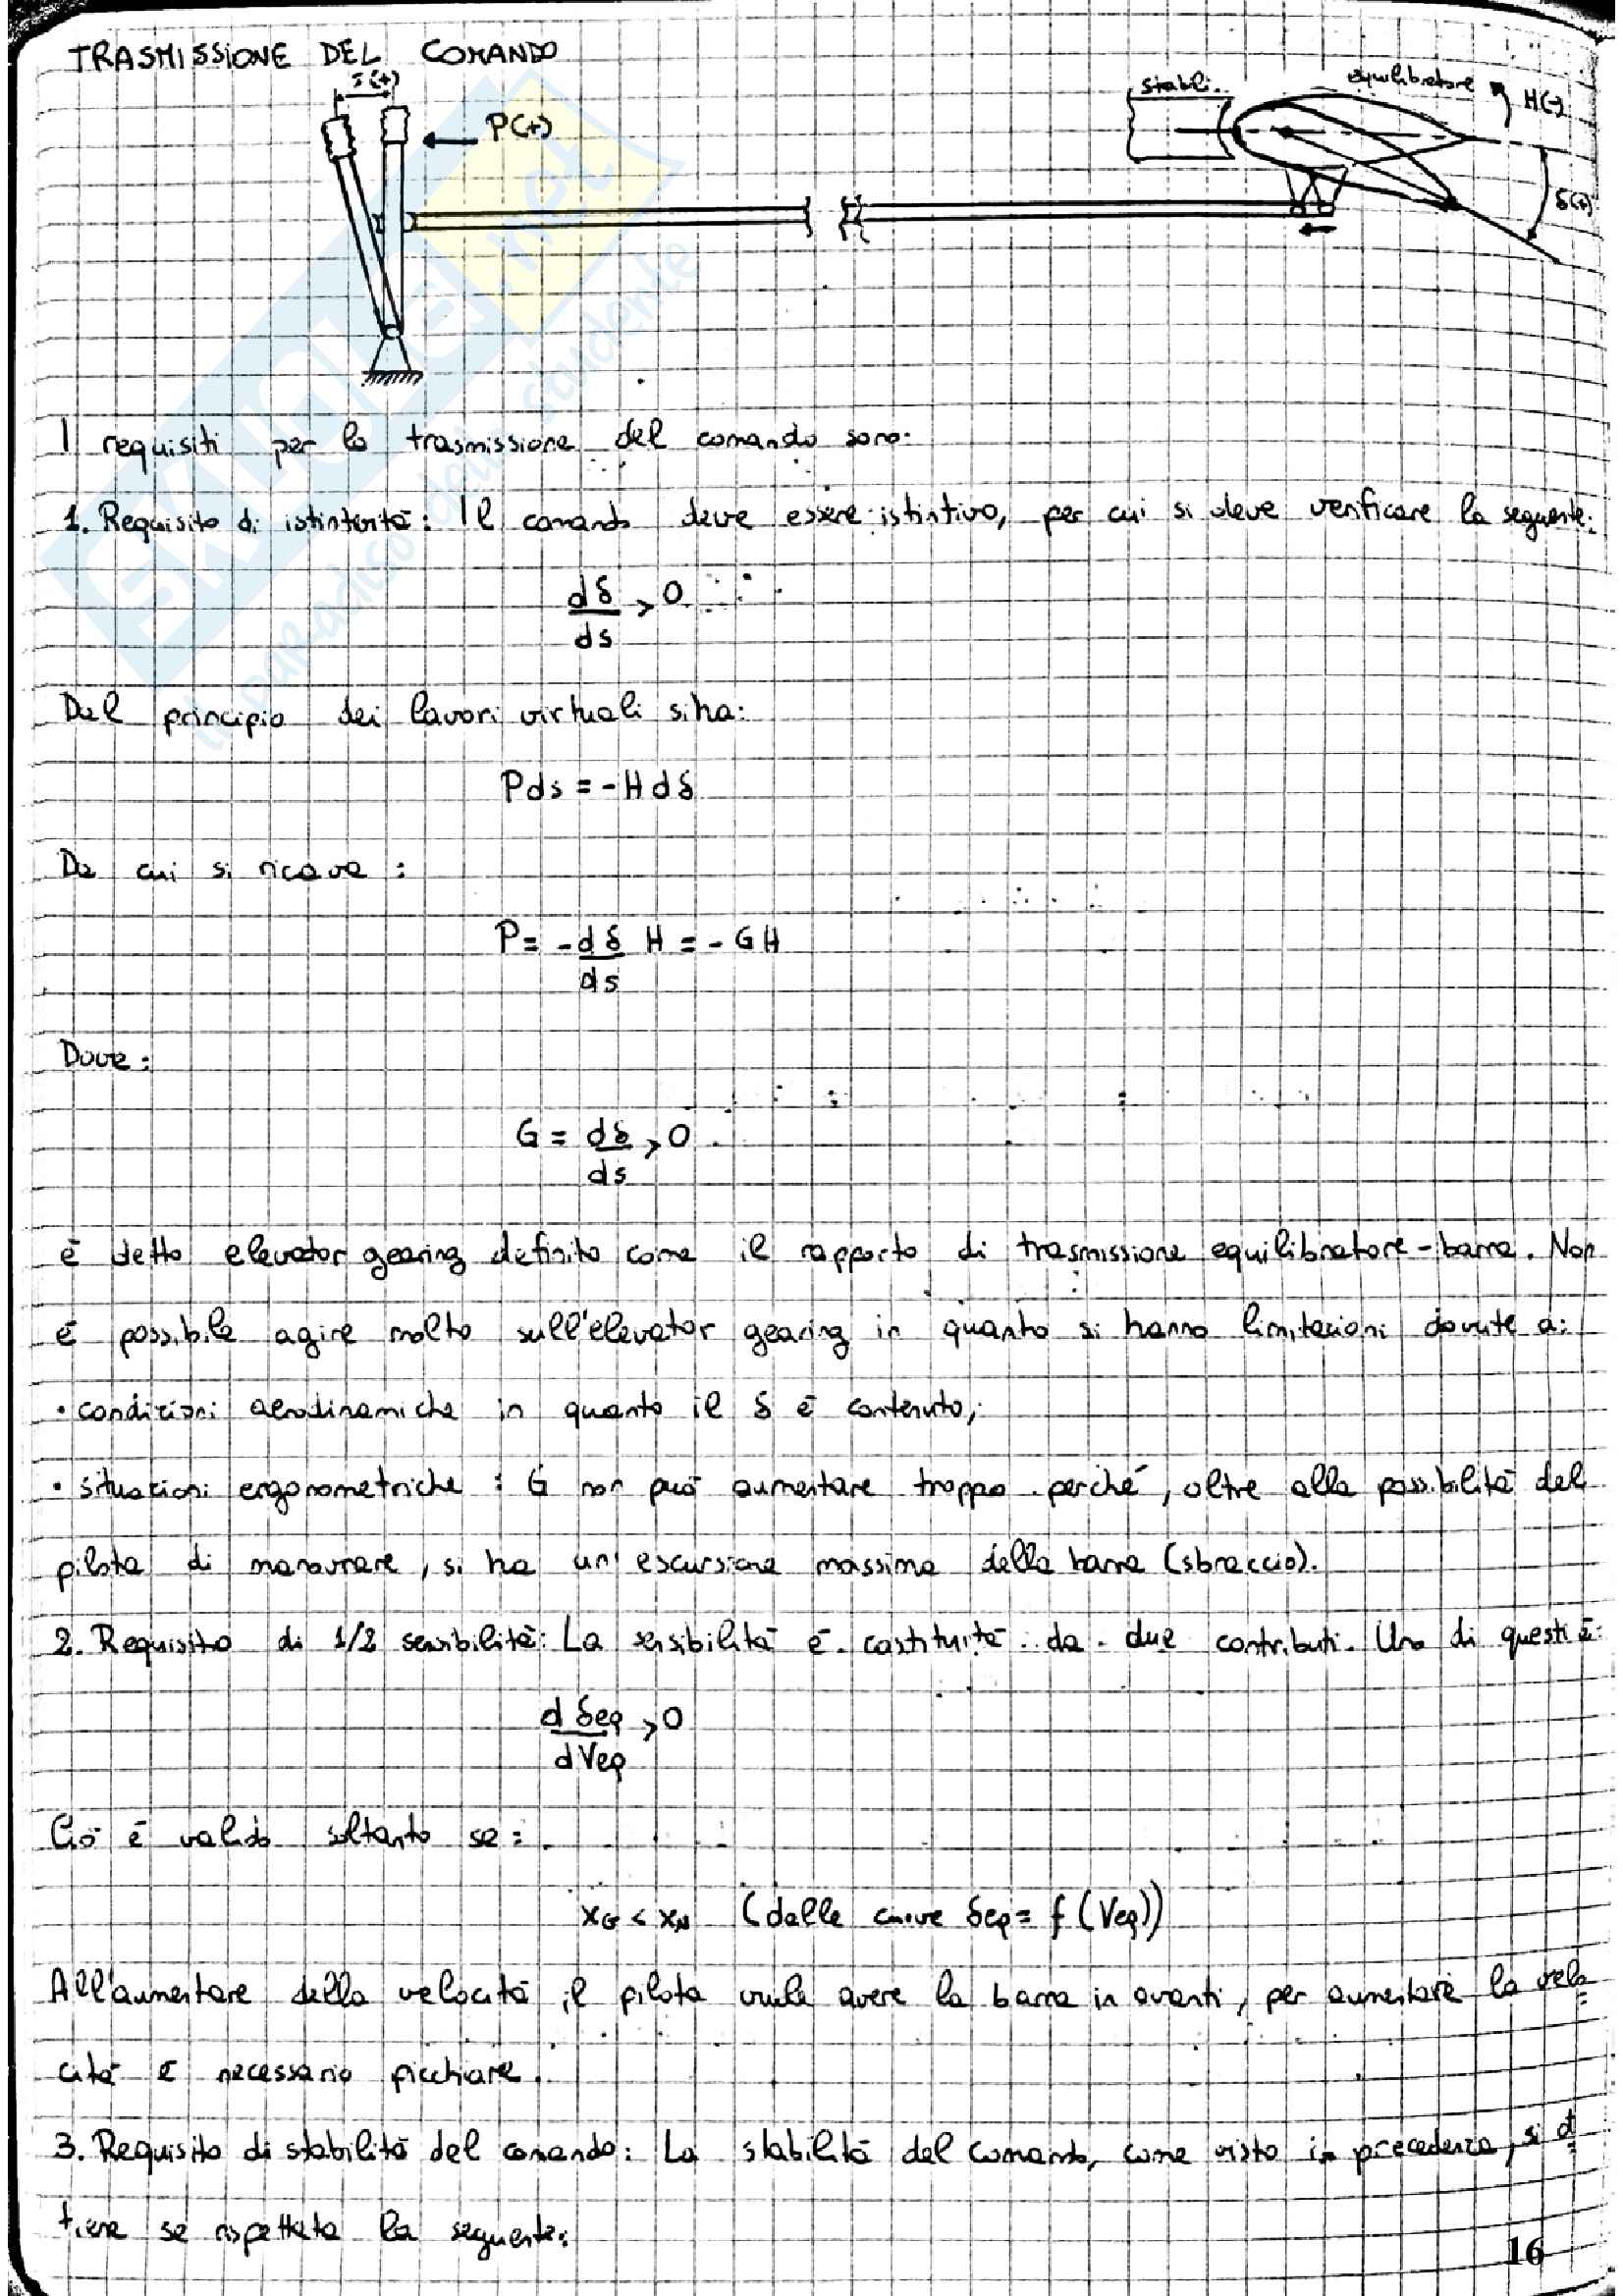 TRASMISSIONE DEL COMANDO
s(+)
P(+)
stabili.
equilibratore
H(-)
δ(+)
I requisiti per la trasmissione del comando sono:
1. Requisito di istintività: Il comando deve essere istintivo, per cui si deve verificare la seguente:
dδ/ds > 0
Dal principio dei lavori virtuali si ha:
Pds = -Hdδ
Da cui si ricava:
P = -dδ/ds H = -GH
Dove:
G = dδ/ds > 0
è detto elevator gearing definito come il rapporto di trasmissione equilibratore-barra. Non
è possibile agire molto sull'elevator gearing in quanto si hanno limitazioni dovute a:
• condizioni aerodinamiche in quanto il δ è contenuto;
• situazioni ergonometriche: G non può aumentare troppo perché, oltre alla possibilità del
pilota di manovrare, si ha un'escursione massima della barra (sbraccio).
2. Requisito di 1/2 sensibilità: La sensibilità è costituita da due contributi. Uno di questi è:
dδeq/dVeq > 0
Ciò è valido soltanto se:
xG < xN (dalle curve δeq = f(Veq))
All'aumentare della velocità il pilota vuole avere la barra in avanti, per aumentare la velo
cità è necessario picchiare.
3. Requisito di stabilità del comando: La stabilità del comando, come visto in precedenza, si ot
tiene se rispettata la seguente:
16
SKUOLA.net
il paradiso dello studente